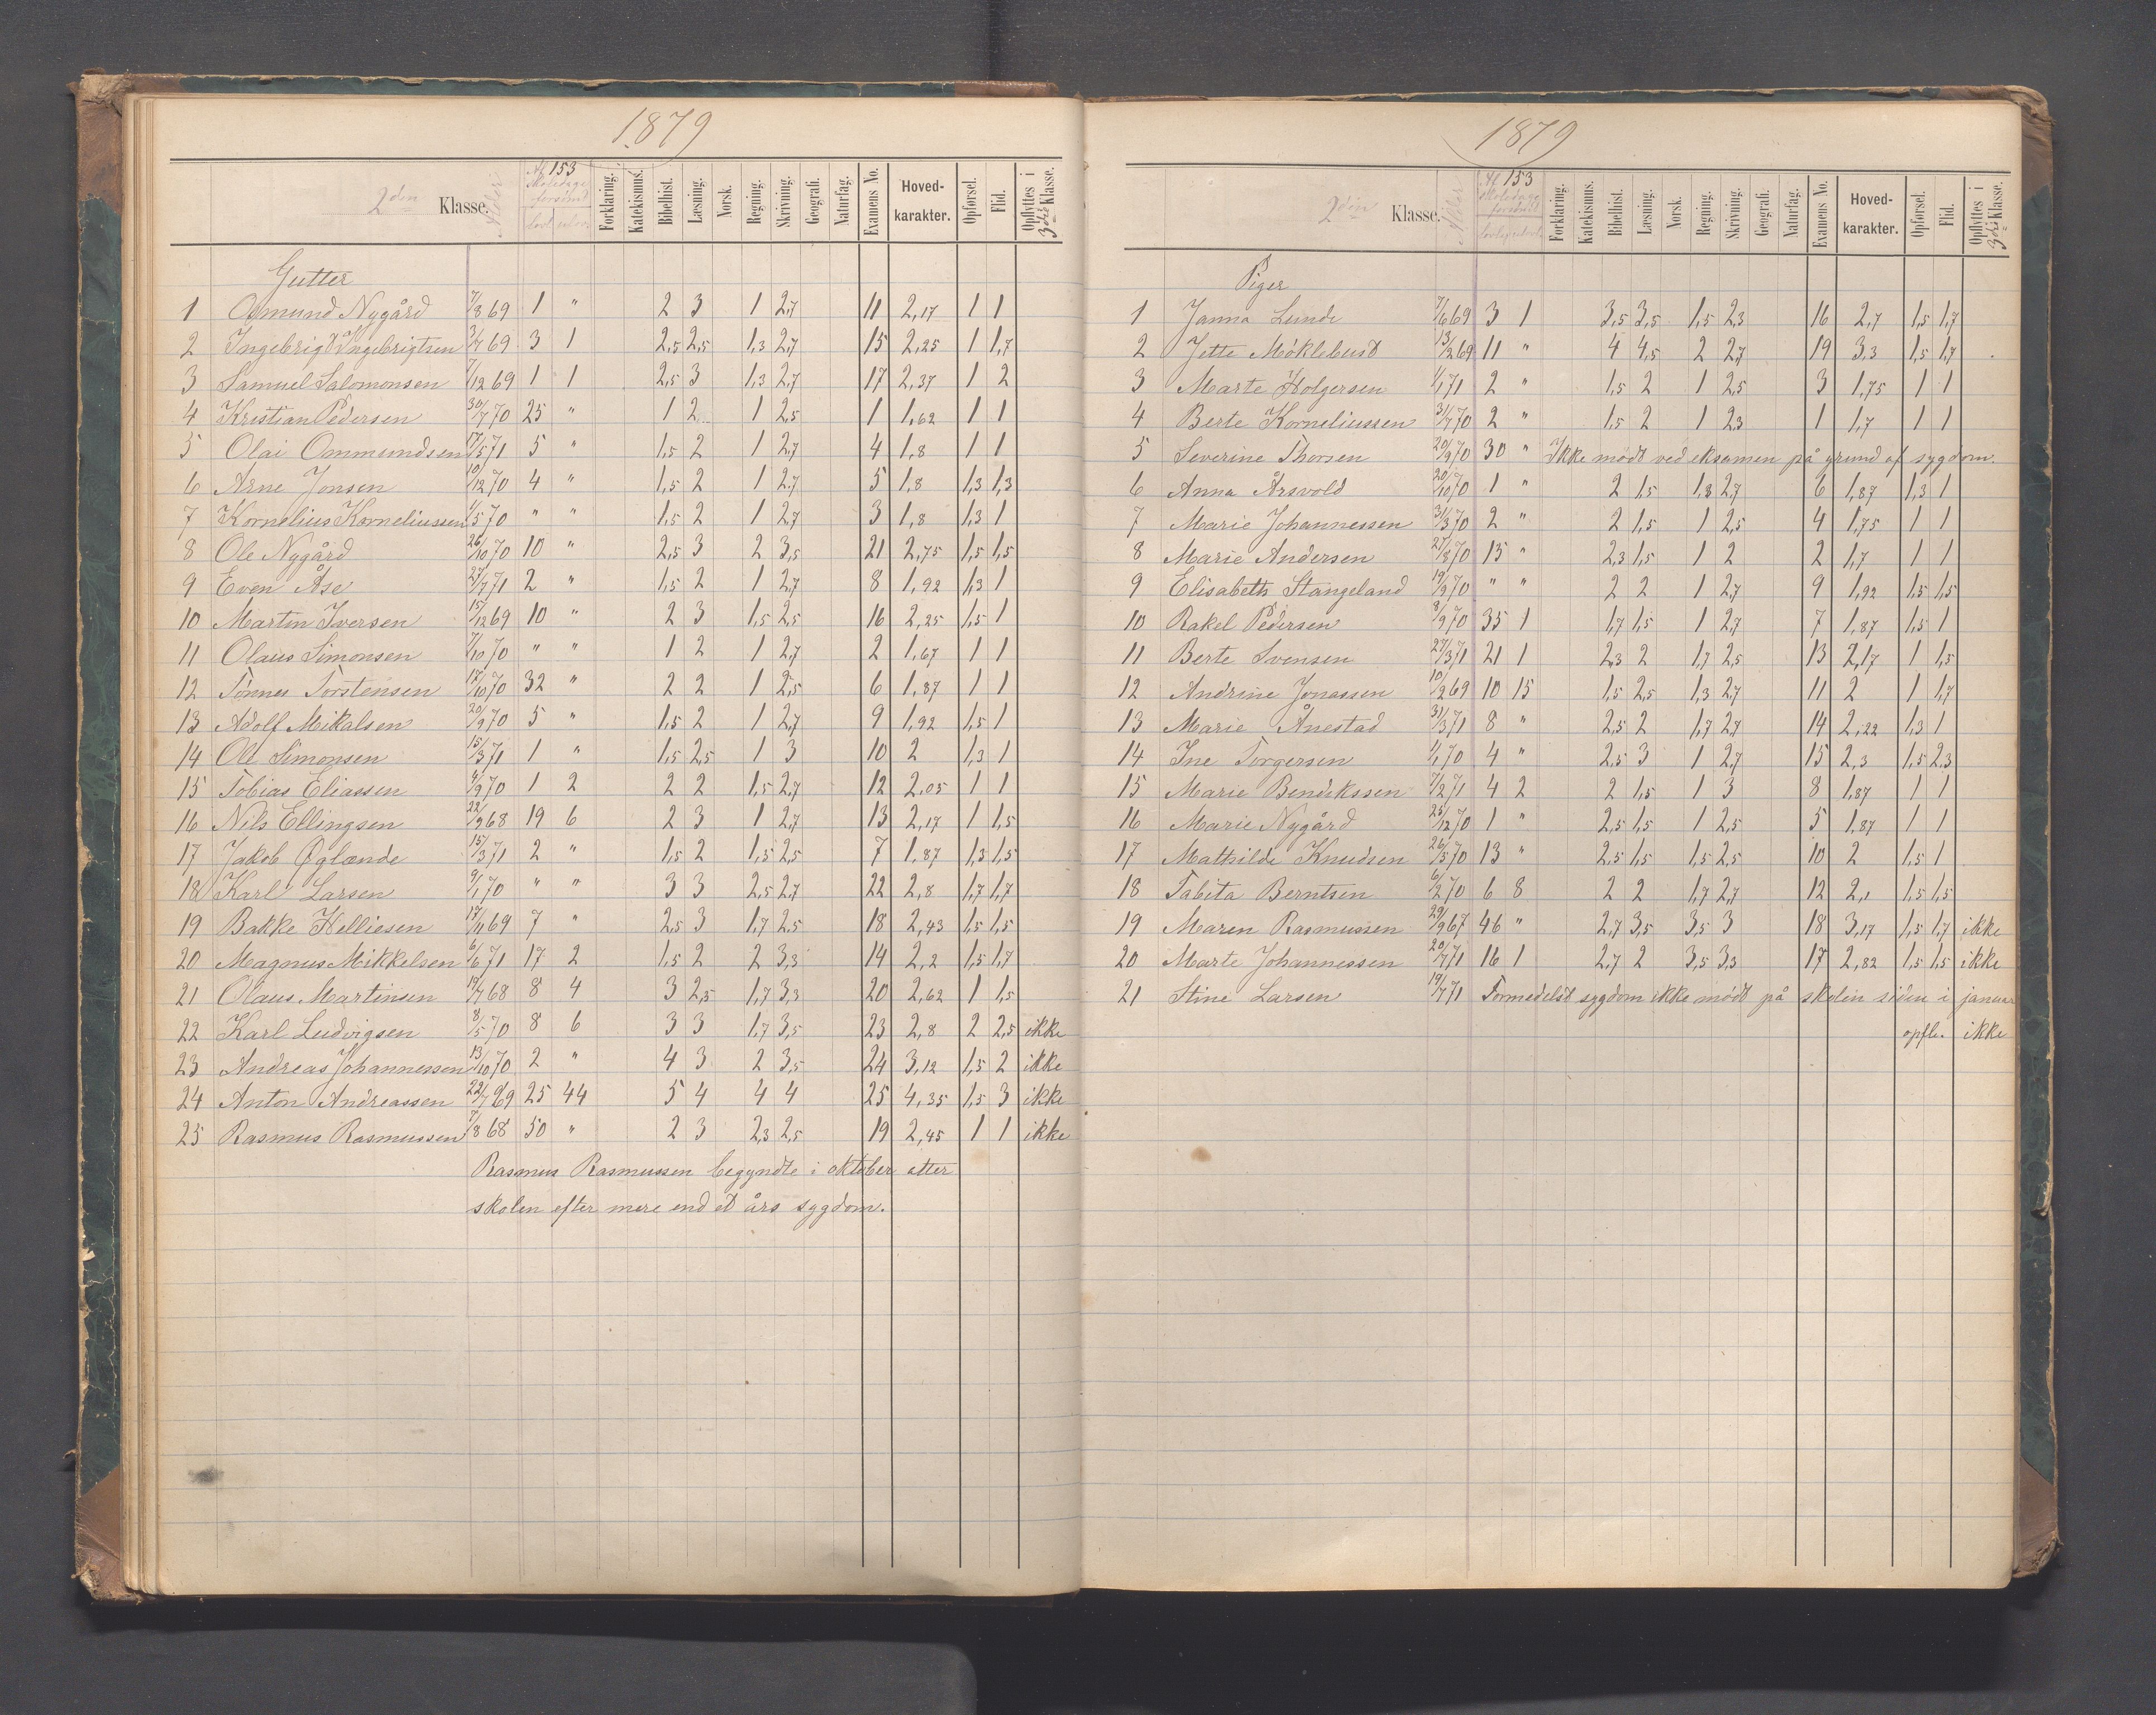 1879
2den Klasse. Alder Af 153 Skoledage forsømt Forklaring. Katekismus. Bibelhist. Læsning. Norsk. Regning. Skrivning. Geografi. Naturfag. Examens No. Hoved-karakter. Opførsel. Flid. Opflyttes i 3die Klasse.
Gutter
1 Osmund Nygård 7/8 69 1 " 2 3 1 2,7 11 2,17 1 1
2 Ingebrigt Ingebrigtsen 3/7 69 3 1 2,5 2,5 1,3 2,7 15 2,25 1 1,7
3 Samuel Salomonsen 7/12 69 1 1 2,5 3 1,3 2,7 17 2,37 1 2
4 Kristian Pedersen 30/7 70 25 " 1 2 1 2,5 1 1,62 1 1
5 Olai Ommundsen 17/5 71 5 " 1,5 2 1 2,7 4 1,8 1 1
6 Arne Jonsen 10/12 70 4 " 1,5 2 1 2,7 5 1,8 1,3 1,3
7 Kornelius Korneliussen 1/5 70 " " 1,5 2 1 2,7 3 1,8 1,3 1
8 Ole Nygård 26/10 70 10 " 2,5 3 2 3,5 21 2,75 1,5 1,5
9 Even Åse 27/7 71 2 " 1,5 2 1 2,7 8 1,92 1,3 1
10 Martin Iversen 15/12 69 10 " 2 3 1,5 2,5 16 2,25 1,5 1
11 Olaus Simonsen 7/10 70 " " 1 2 1 2,7 2 1,67 1 1
12 Tønnes Torstensen 17/10 70 32 " 2 2 1 2,5 6 1,87 1 1
13 Adolf Mikalsen 20/9 70 5 " 1,5 2 1 2,7 9 1,92 1,5 1
14 Ole Simonsen 15/3 71 1 " 1,5 2,5 1 3 10 2 1,3 1
15 Tobias Eliassen 4/9 70 1 2 2 2 1,5 2,7 12 2,05 1 1
16 Nils Ellingsen 22/9 68 19 6 2 3 1 2,7 13 2,17 1 1,5
17 Jakob Øglænde 15/3 71 2 " 1,5 2 1,5 2,5 7 1,87 1,3 1,5
18 Karl Larsen 9/1 70 " " 3 3 2,5 2,7 22 2,8 1,7 1,7
19 Bakke Helliesen 17/11 69 7 " 2,5 3 1,7 2,5 18 2,43 1,5 1,5
20 Magnus Mikkelsen 6/6 71 17 2 1,5 2 2 3,3 14 2,2 1,5 1,7
21 Olaus Martinsen 19/7 68 8 4 3 2,5 1,7 3,3 20 2,62 1 1,5
22 Karl Ludvigsen 8/5 70 8 6 3 3 1,7 3,5 23 2,8 2 2,5 ikke
23 Andreas Johannessen 13/10 70 2 " 4 3 2 3,5 24 3,12 1,5 2 ikke
24 Anton Andreassen 22/7 69 25 44 5 4 4 4 25 4,35 1,5 3 ikke
25 Rasmus Rasmussen 7/8 68 50 " 2 3 2,3 2,5 19 2,45 1 1 ikke
Rasmus Rasmussen begyndte i oktober atter
skolen efter mere end et års sygdom.
1879
2den Klasse. Alder Af 153 Skoledage forsømt Forklaring. Katekismus. Bibelhist. Læsning. Norsk. Regning. Skrivning. Geografi. Naturfag. Examens No. Hoved-karakter. Opførsel. Flid. Opflyttes i 3die Klasse.
Piger
1 Janna Lunde 7/6 69 3 1 3,5 3,5 1,5 2,3 16 2,7 1,5 1,7
2 Jette Møklebust 13/12 69 11 " 4 4,5 2 2,7 19 3,3 1,5 1,7
3 Marte Holgersen 1/1 71 2 " 1,5 2 1 2,5 3 1,75 1 1
4 Berte Korneliussen 31/7 70 2 " 1,5 2 1 2,3 1 1,7 1 1
5 Severine Thorsen 20/9 70 30 " Ikke mødt ved eksamen på grund af sygdom.
6 Anna Årsvold 20/10 70 1 " 2 1,5 1,3 2,7 6 1,87 1,3 1
7 Marie Johannessen 31/3 70 2 " 2 1,5 1 2,5 4 1,75 1 1
8 Marie Andersen 27/8 70 15 " 2,3 1,5 1 2 2 1,7 1 1
9 Elisabeth Stangeland 19/9 70 " " 2 2 1 2,7 9 1,92 1,5 1,5
10 Rakel Pedersen 8/9 70 35 1 1,7 1,5 1 2,7 7 1,87 1,5 1
11 Berte Svensen 27/3 71 21 1 2,3 2 1,7 2,5 13 2,17 1 1,5
12 Andrine Jonassen 10/2 69 10 15 1,5 2,5 1,3 2,7 11 2 1 1,7
13 Marie Ånestad 31/3 71 8 " 2,5 2 1,7 2,7 14 2,22 1,3 1
14 Ine Torgersen 1/1 70 4 " 2,5 3 1 2,7 15 2,3 1,5 2,3
15 Marie Bendikssen 7/2 71 4 2 2 1,5 1 3 8 1,87 1 1
16 Marie Nygård 25/12 70 1 " 2,5 1,5 1 2,5 5 1,87 1 1
17 Mathilde Knudsen 26/5 70 13 " 2,5 1,5 1,5 2,5 10 2 1,5 1
18 Tabita Berntsen 6/2 70 6 8 2 2 1,7 2,7 12 2,1 1,5 1,5
19 Maren Rasmussen 29/9 67 46 " 2,7 3,5 3,5 3 18 3,17 1,5 1,7 ikke
20 Marte Johannessen 20/7 71 16 1 2,7 2 3,5 3,3 17 2,82 1,5 1,5 ikke
21 Stine Larsen 19/7 71 Formedelst sygdom ikke mødt på skolen siden i januar
opfl. ikke